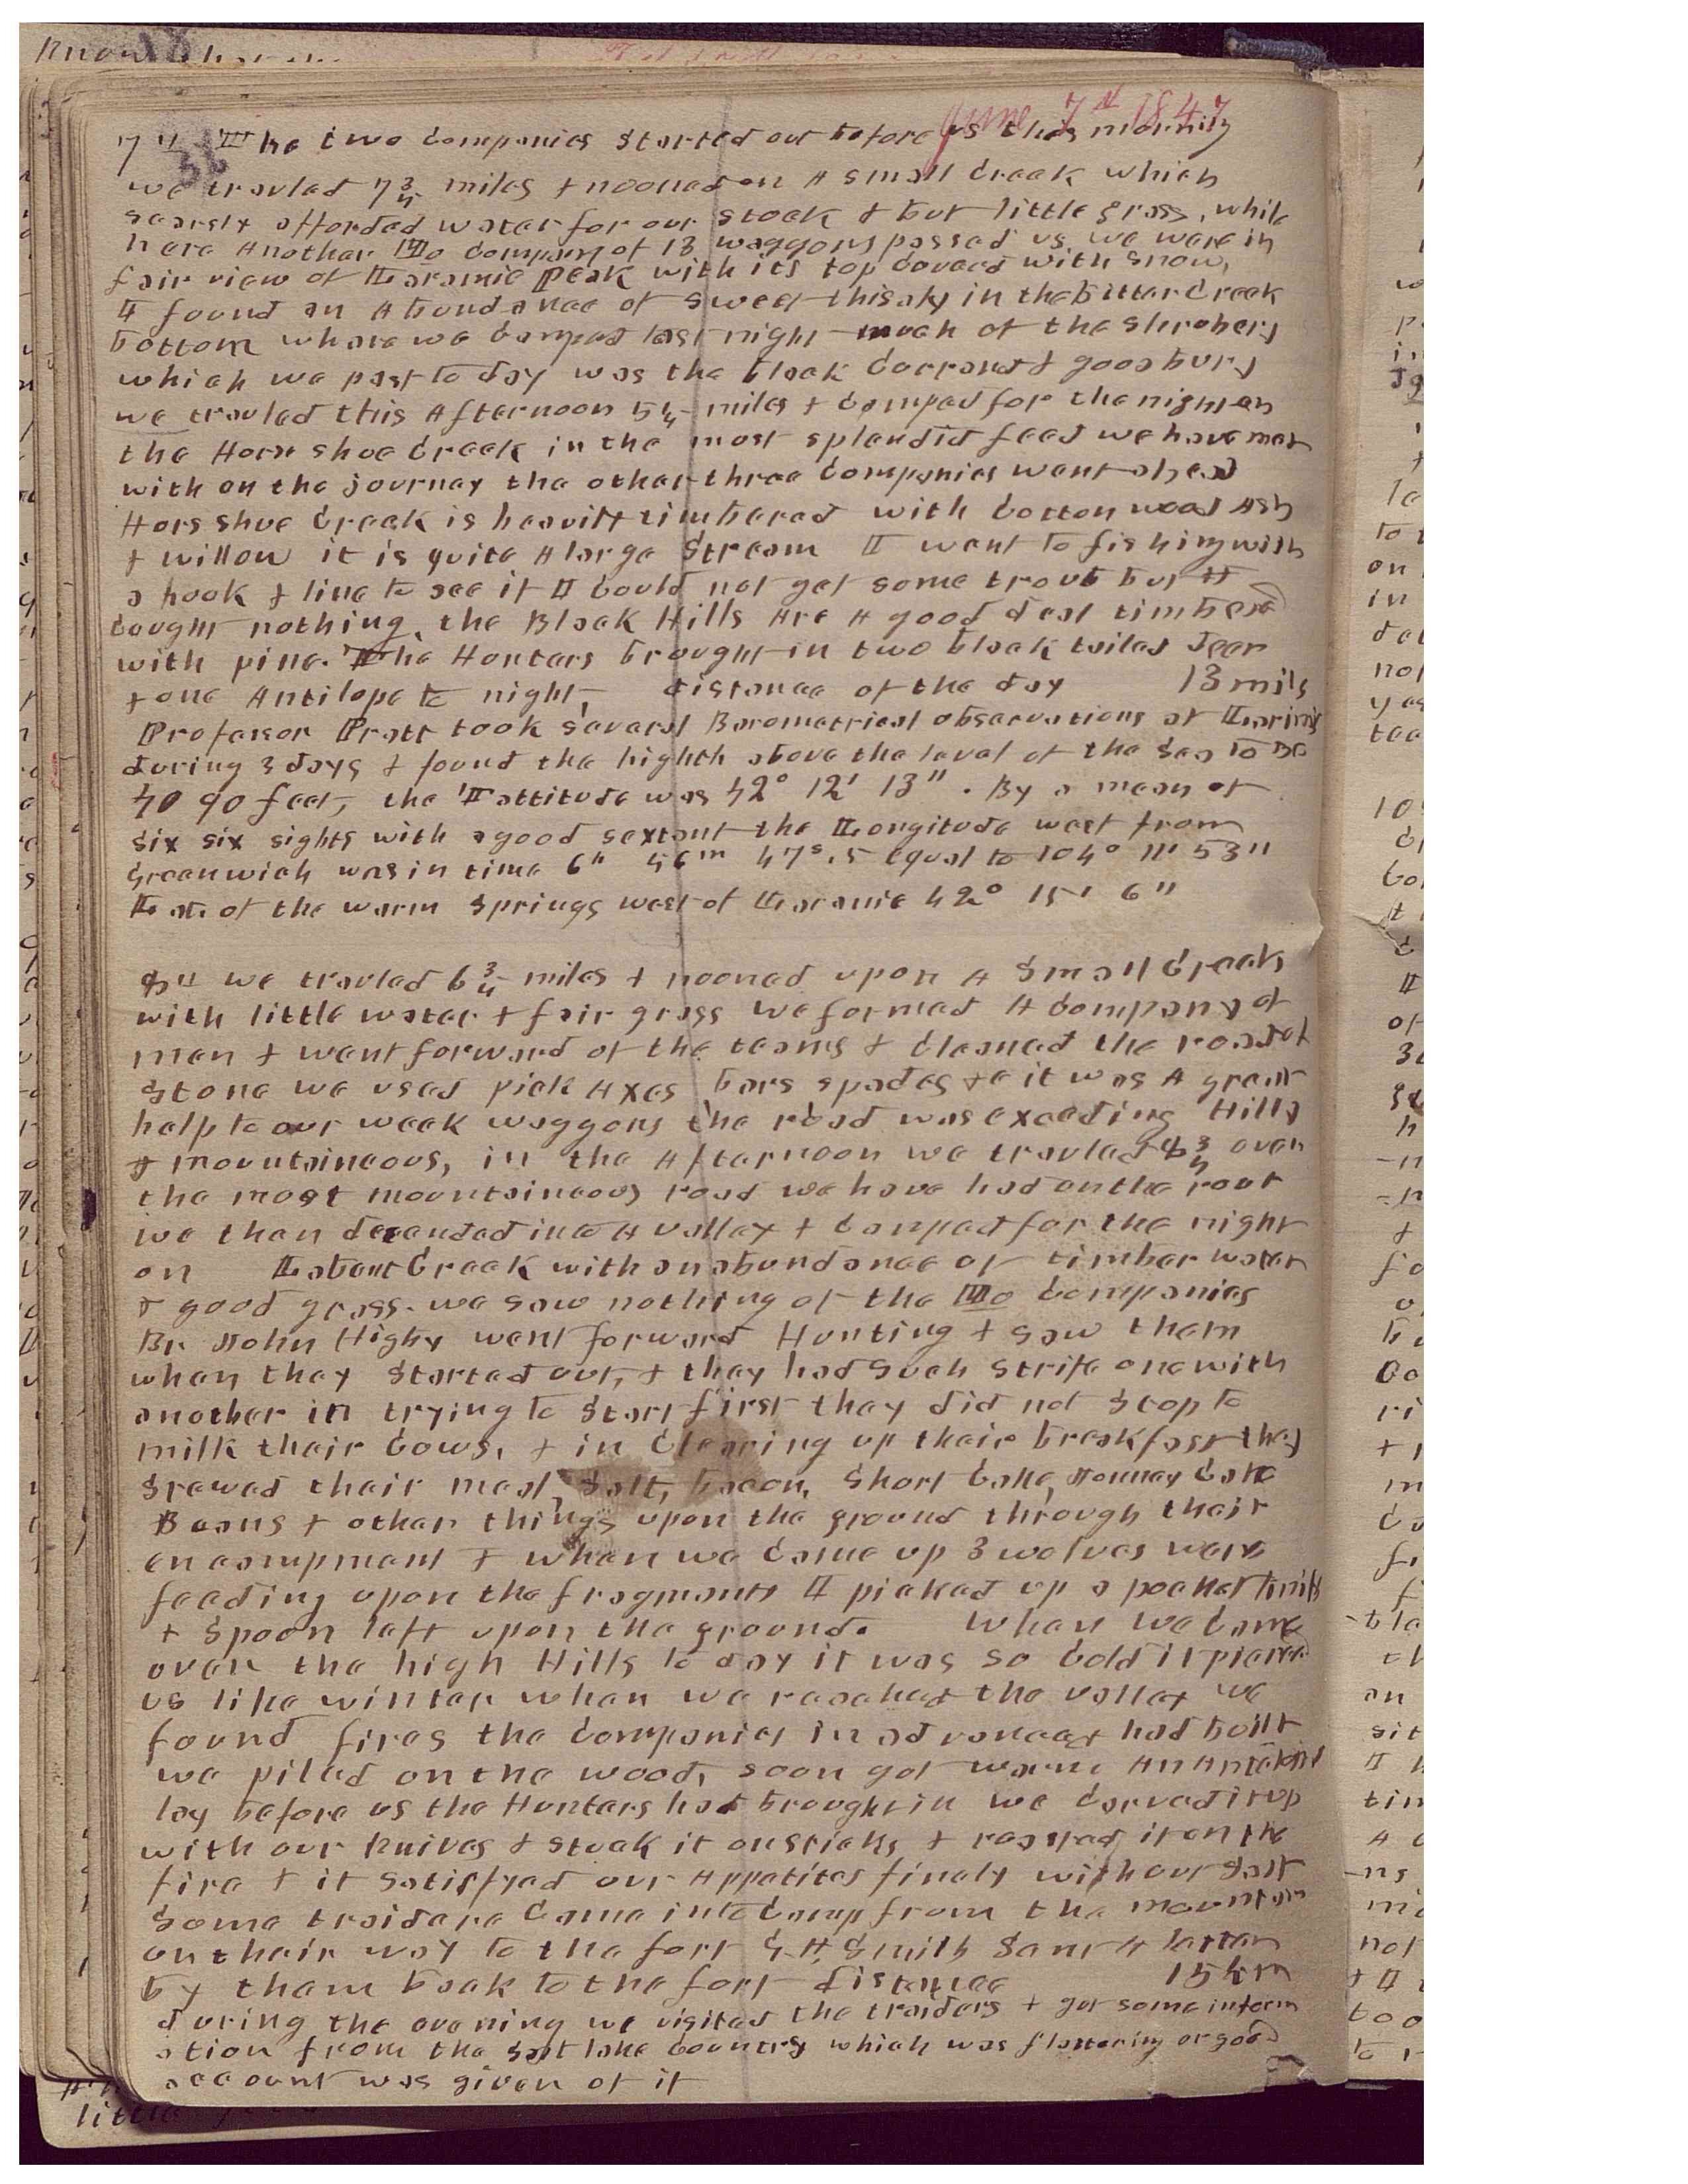 June 7th 1847
7th The two companies started out before us this morning
we travled 7 3/4 miles & nooned on A small Creek which
scarsly afforded water for our stock & but little grass, while
here Another Mo company of 13 waggons passed us. we were in
fair view of Laramie Peak with its top coverd with snow,
I found an Aboundance of sweet thisaly in the bitter Creek
bottom whare we camped last night much of the shrubery
which we past to day was the black Currant & goosbury
we travled this Afternoon 5 1/4 miles & camped for the night on
the Horse shoe Creek in the most splendid feed we have met
with on the journey the other three companies went ahead
Hors shoe Creek is heavily timbered with cotton wood Ash
& willow it is quite A large Stream I went to fishing with
a hook & line to see if I could not get some trout but I
caught nothing. the Black Hills Are A good deal timbered
with pine. The Hunters brought in two black tailed Deer
& one Antilope to night, distance of the day 13 mils
Professor Pratt took several Barometrical observations at Larimi
during 3 days & found the highth above the level of the Sea to be
4090 feet, the Lattitude was 42° 12' 13". By a mean of
six six sights with a good sextant the Longitude west from
Greenwich was in time 6h 56m 47s.5 equal to 104° 11' 53"
Lat. of the warm springs west of Laramie 42° 15' 6"
8th we travled 6 3/4 miles & nooned upon A small Creek
with little water & fair grass we formed A company of
men & went forward of the teams & cleaned the road of
stone we used pick Axes bars spades &c it was A great
help to our week waggons the road was exceding Hilly
& mountaineous, in the Afternoon we travled 8 3/4 over
the most mountaineous road we have had on the rout
we then decended into A valley & camped for the night
on Labont Creek with an abundance of timber water
& good grass. we saw nothing of the Mo Companies
Br John Higby went forward Hunting & saw them
when they started out, & they had such strife one with
another in trying to start first they did not stop to
milk their cows, & in cleaning up their breakfast they
strewed their meal, salt, bacon, short cake, Jonney Cake
Beans & other things upon the ground through their
encampment & when we came up 3 wolves were
feeding upon the fragments I picked up a pocket knife
& Spoon left upon the ground. When we came
over the high Hills to day it was so cold it pierced
us like winter when we reached the valley we
found fires the companies in advanced had built
we piled on the wood, soon got warm An Antelope
lay before us the Hunters had brought in we carved it up
with our knives & stuck it on sticks & roasted it on the
fire & it satisfyed our Appetites finely without salt
Some traiders came into Camp from the mountain
on their way to the fort G. A. Smith sent A letter
by them back to the fort distance 15 1/2 m
during the evening we visited the traiders & got some inform
ation from the Salt lake country which was flattering or good
account was given of it